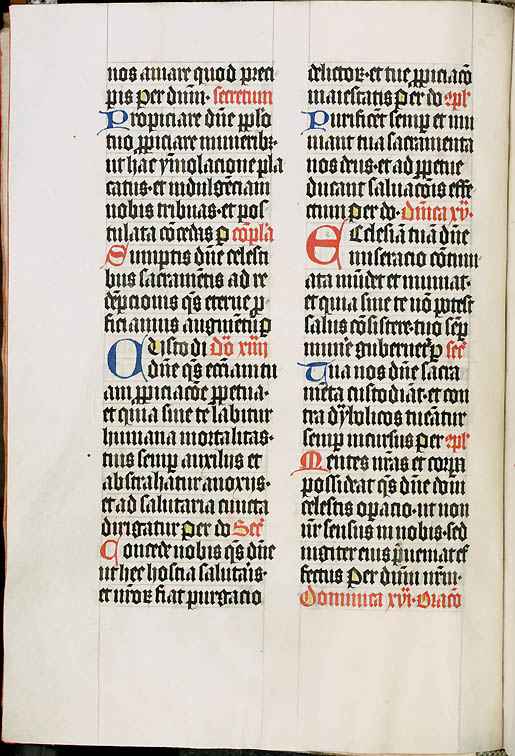 nos amare quod preci
pis per dnm. secretum
Propiciare dne pplo
tuo ppiciare muneribz.
ut hac ymolacione pla
catus. et indulgēciam
nobis tribuas. et pos
tulata cōcedis p cōpla
Sumptis dne celesti
bus sacramētis ad re
dēpcionis qs eterne p
ficiamus augmētū p
Custodi dō xiiii
dne qs ecciam tu
am ppiciacōe ppetua.
et quia sine te labitur
humana mortalitas.
tuis semp auxiliis et
abstrahatur anoxiis.
et ad salutaria cuncta
dirigatur per do Secr
Concede nobis qs dne
ut hec hostia salutaris.
et nrōr fiat purgacio
delictor. et tue ppiciacō
maiestatis per do cpl
Purificet semp et mu
niant tua sacramenta
nos deus. et ad ppetue
ducant saluacōis effe
ctum per do. dnica xv.
Ecclesiā tuā dne
miseracio cōtinu
ata mūdet et muniat.
et quia sine te nō potest
salua cōsistere. tuo sēp
munē gubernet p secr
Tua nos dne sacra
mēta custodiāt. et con
tra dyabolicos tueātur
semp incursus per cpl
Mentes nrās et corpa
possideat qs dne doni
celestis opacio. ut non
nr sensus in nobis. sed
iugiter eius pueniat ef
fectus per dnm nrm.
Dominica xvi. Oracō